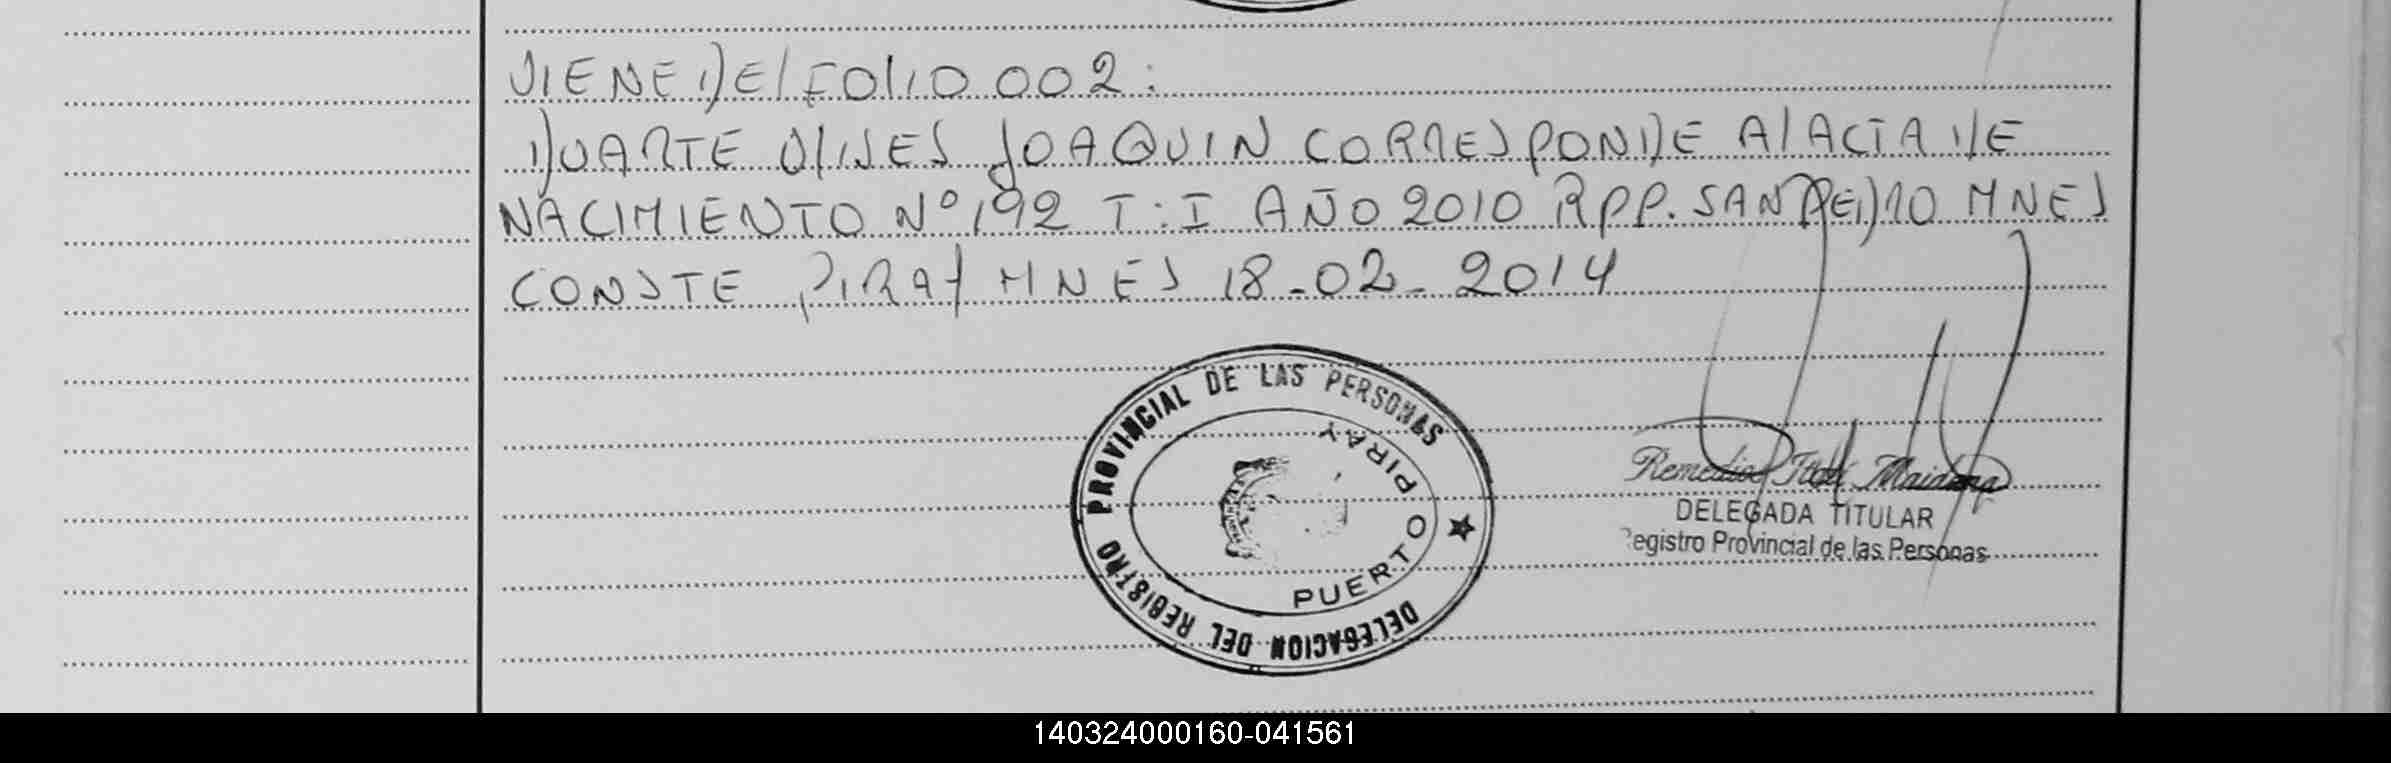 VIENE DEL FOLIO 002:
DUARTE ULISES JOAQUIN CORRESPONDE AL ACTA DE
NACIMIENTO Nº 192 T: I AÑO 2010 RPP. SAN PEDRO MNES
CONSTE PIRAY MNES 18-02-2014
DELEGACION DEL REGISTRO PROVINCIAL DE LAS PERSONAS
PUERTO PIRAY
Remedios Maidana
DELEGADA TITULAR
Registro Provincial de las Personas
140324000160-041561